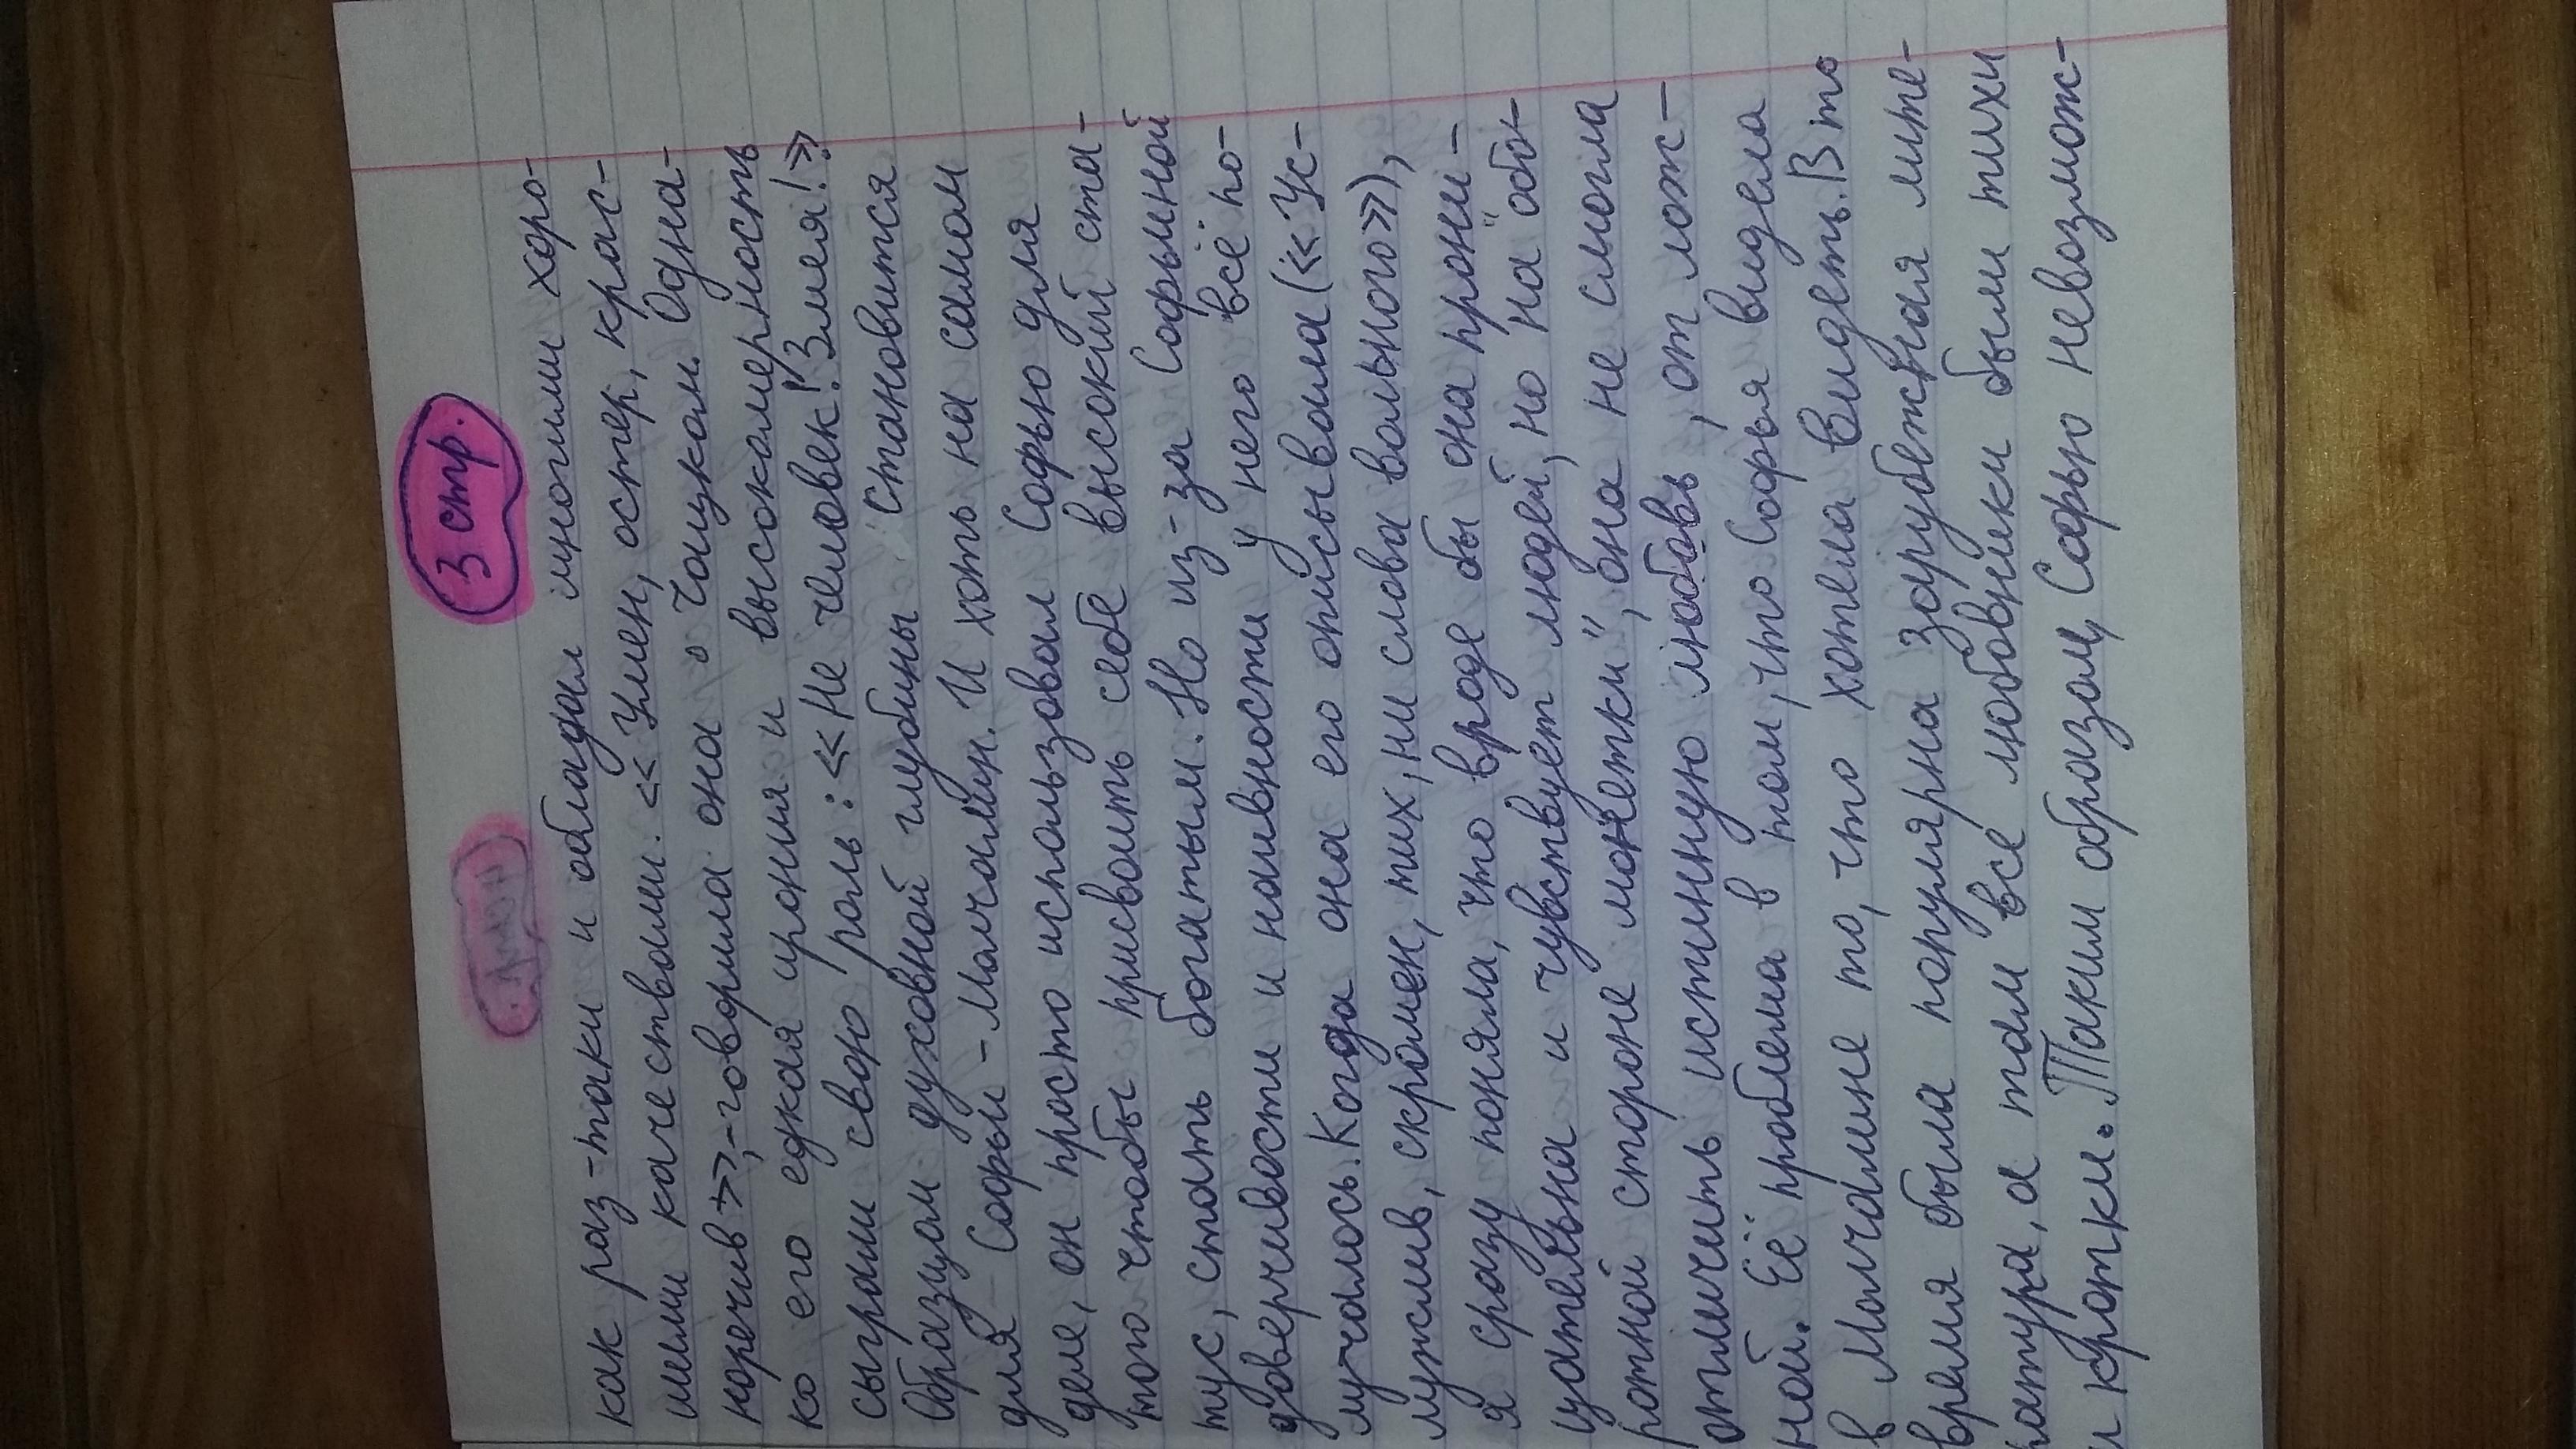 3 стр.
как раз-таки и обладал многими хоро-
шими качествами. «Умен, остер, крас-
норечив»,-говорила она о Чацком. Одна-
ко его едкая ирония и высокомерность
сыграли свою роль: «Не человек! Змея!»
Образцом духовной глубины становится
для Софьи - Молчалин. И хоть на самом
деле, он просто использовал Софью для
того чтобы присвоить себе высокий ста-
тус, стать богатым. Но из-за Софьиной
доверчивости и наивности у него всё по-
лучалось. Когда она его описывала («Ус-
лужлив, скромен, тих, ни слова вольного»),
я сразу поняла, что вроде бы она прони-
цательна и чувствует людей, но на "обо-
ротной стороне монетки", она не смогла
отличить истинную любовь, от лож-
ной. Её проблема в том, что Софья видела
в Молчалине то, что хотела видеть. В то
время была популярна зарубежная лите-
ратура, а там все любовники были тихи
и кротки. Таким образом, Софью невозмож-